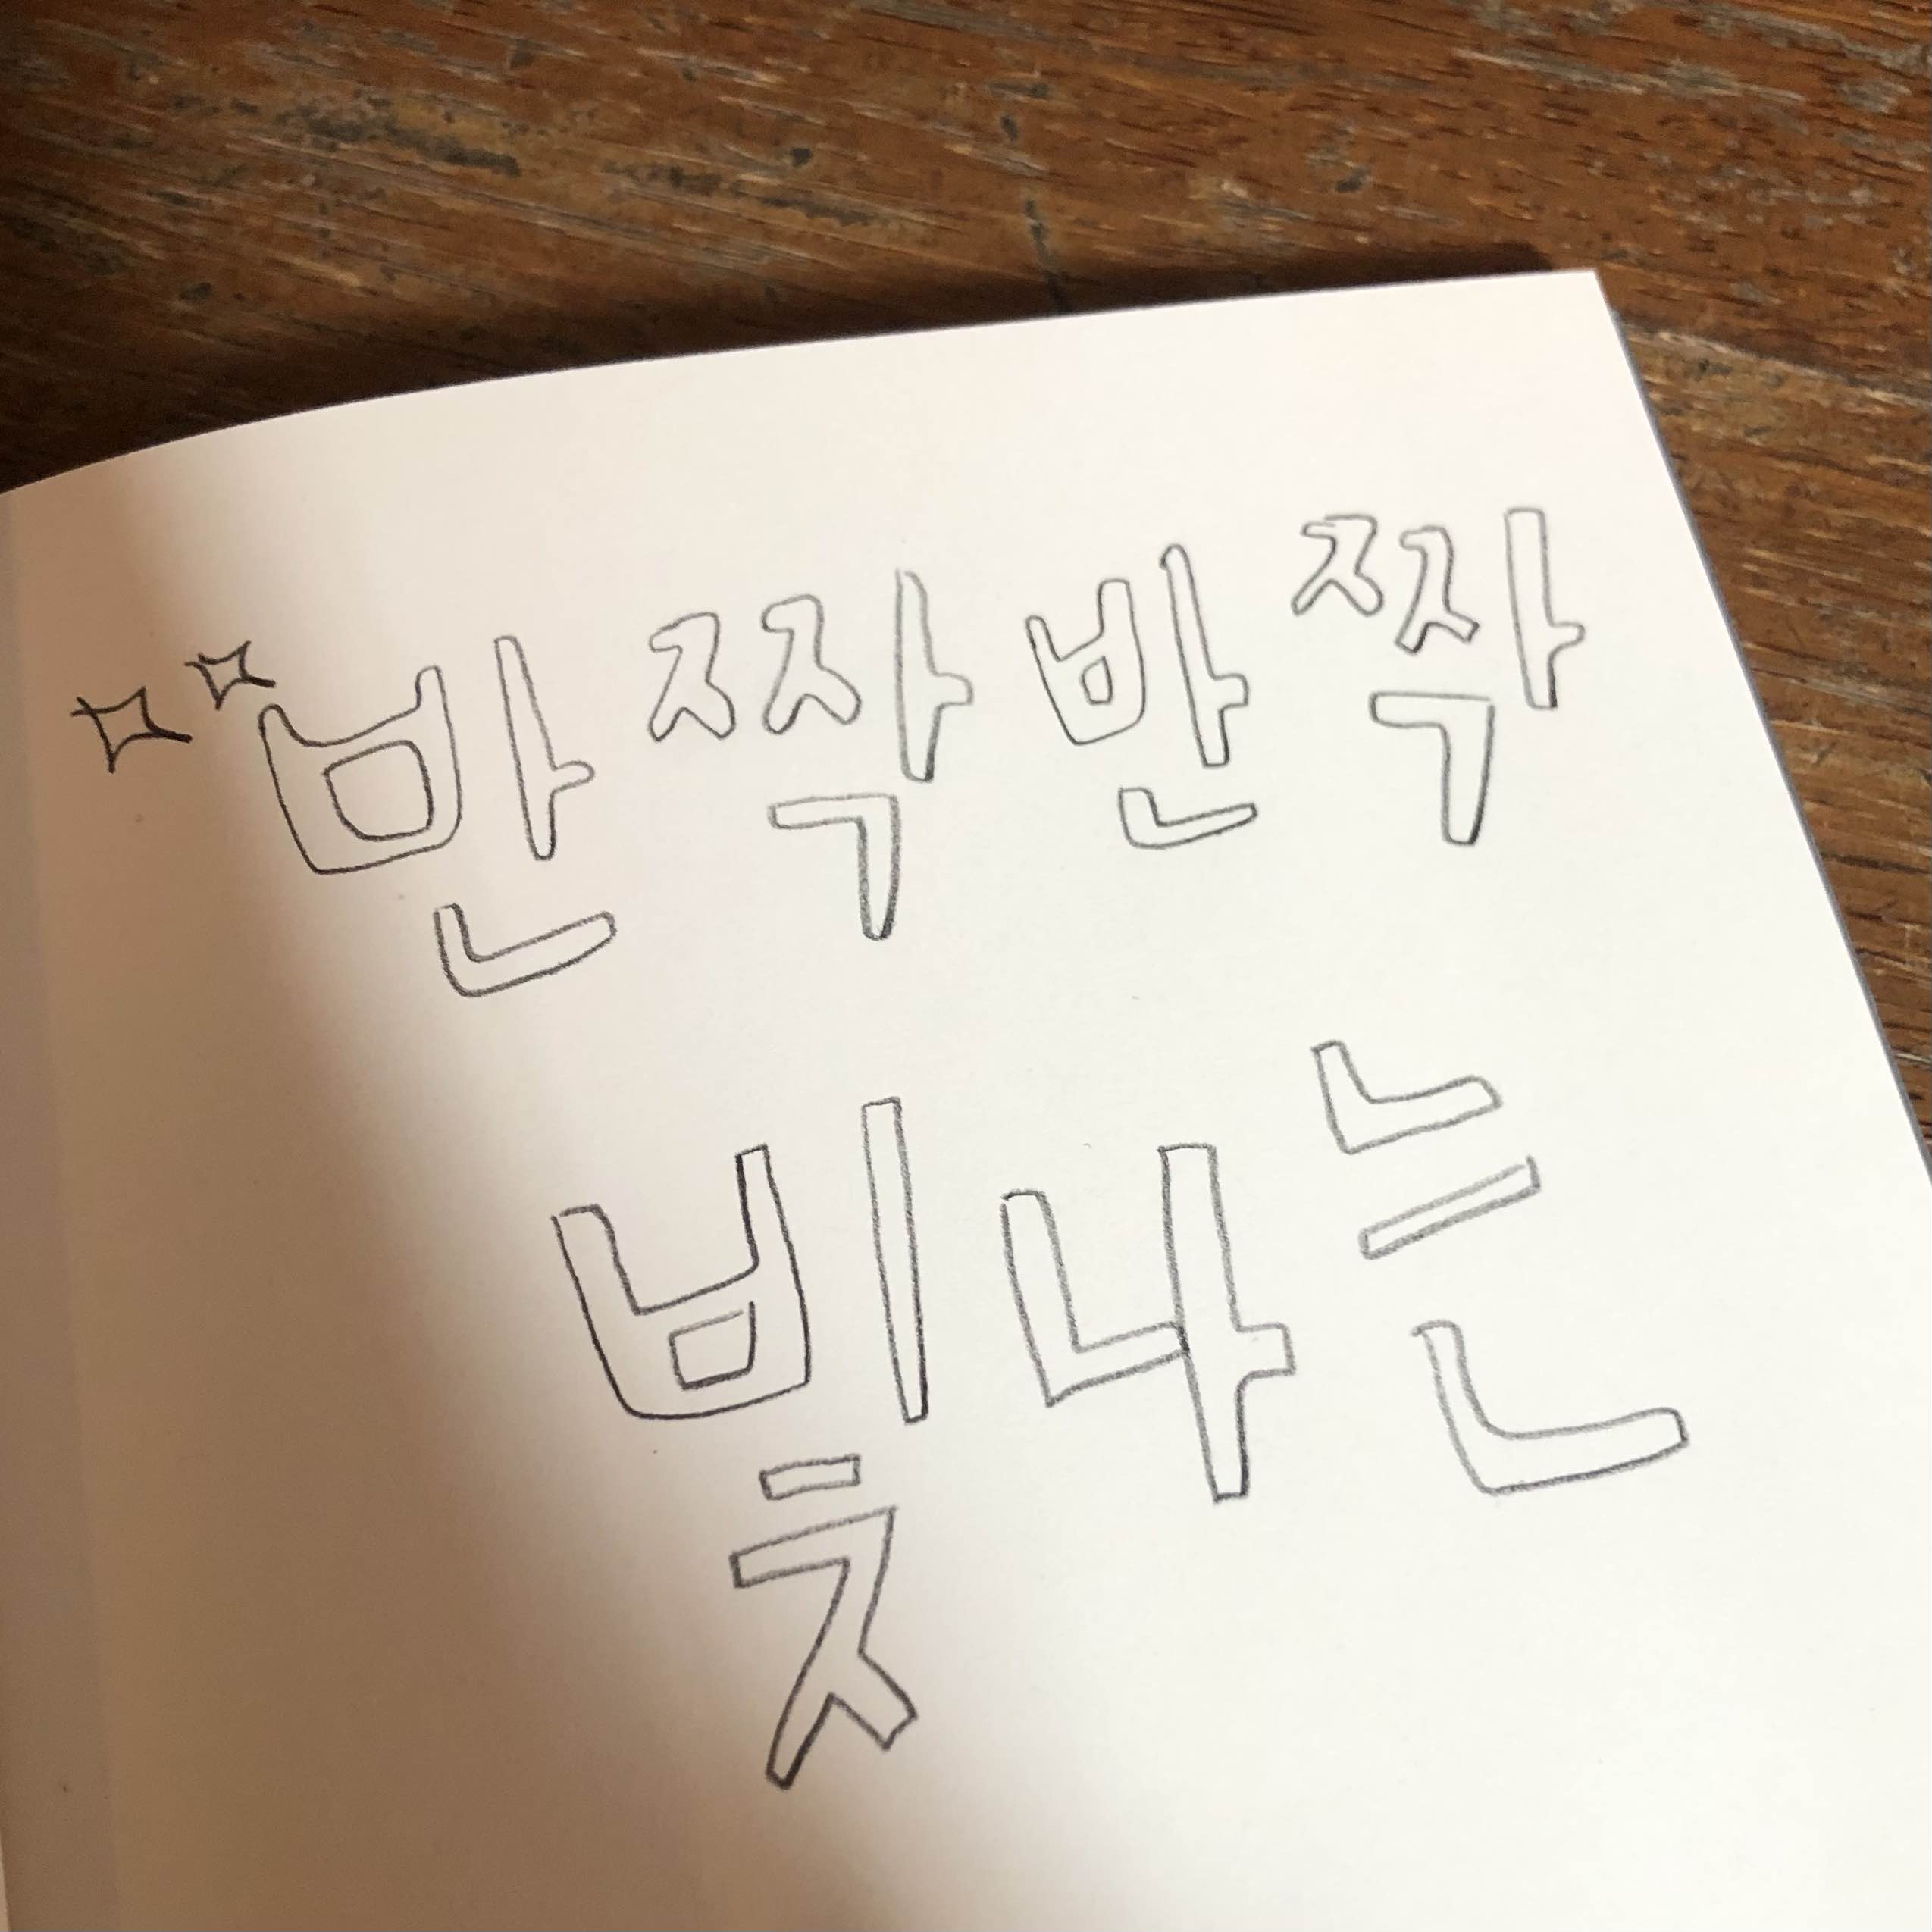 반짝반짝
빛나는